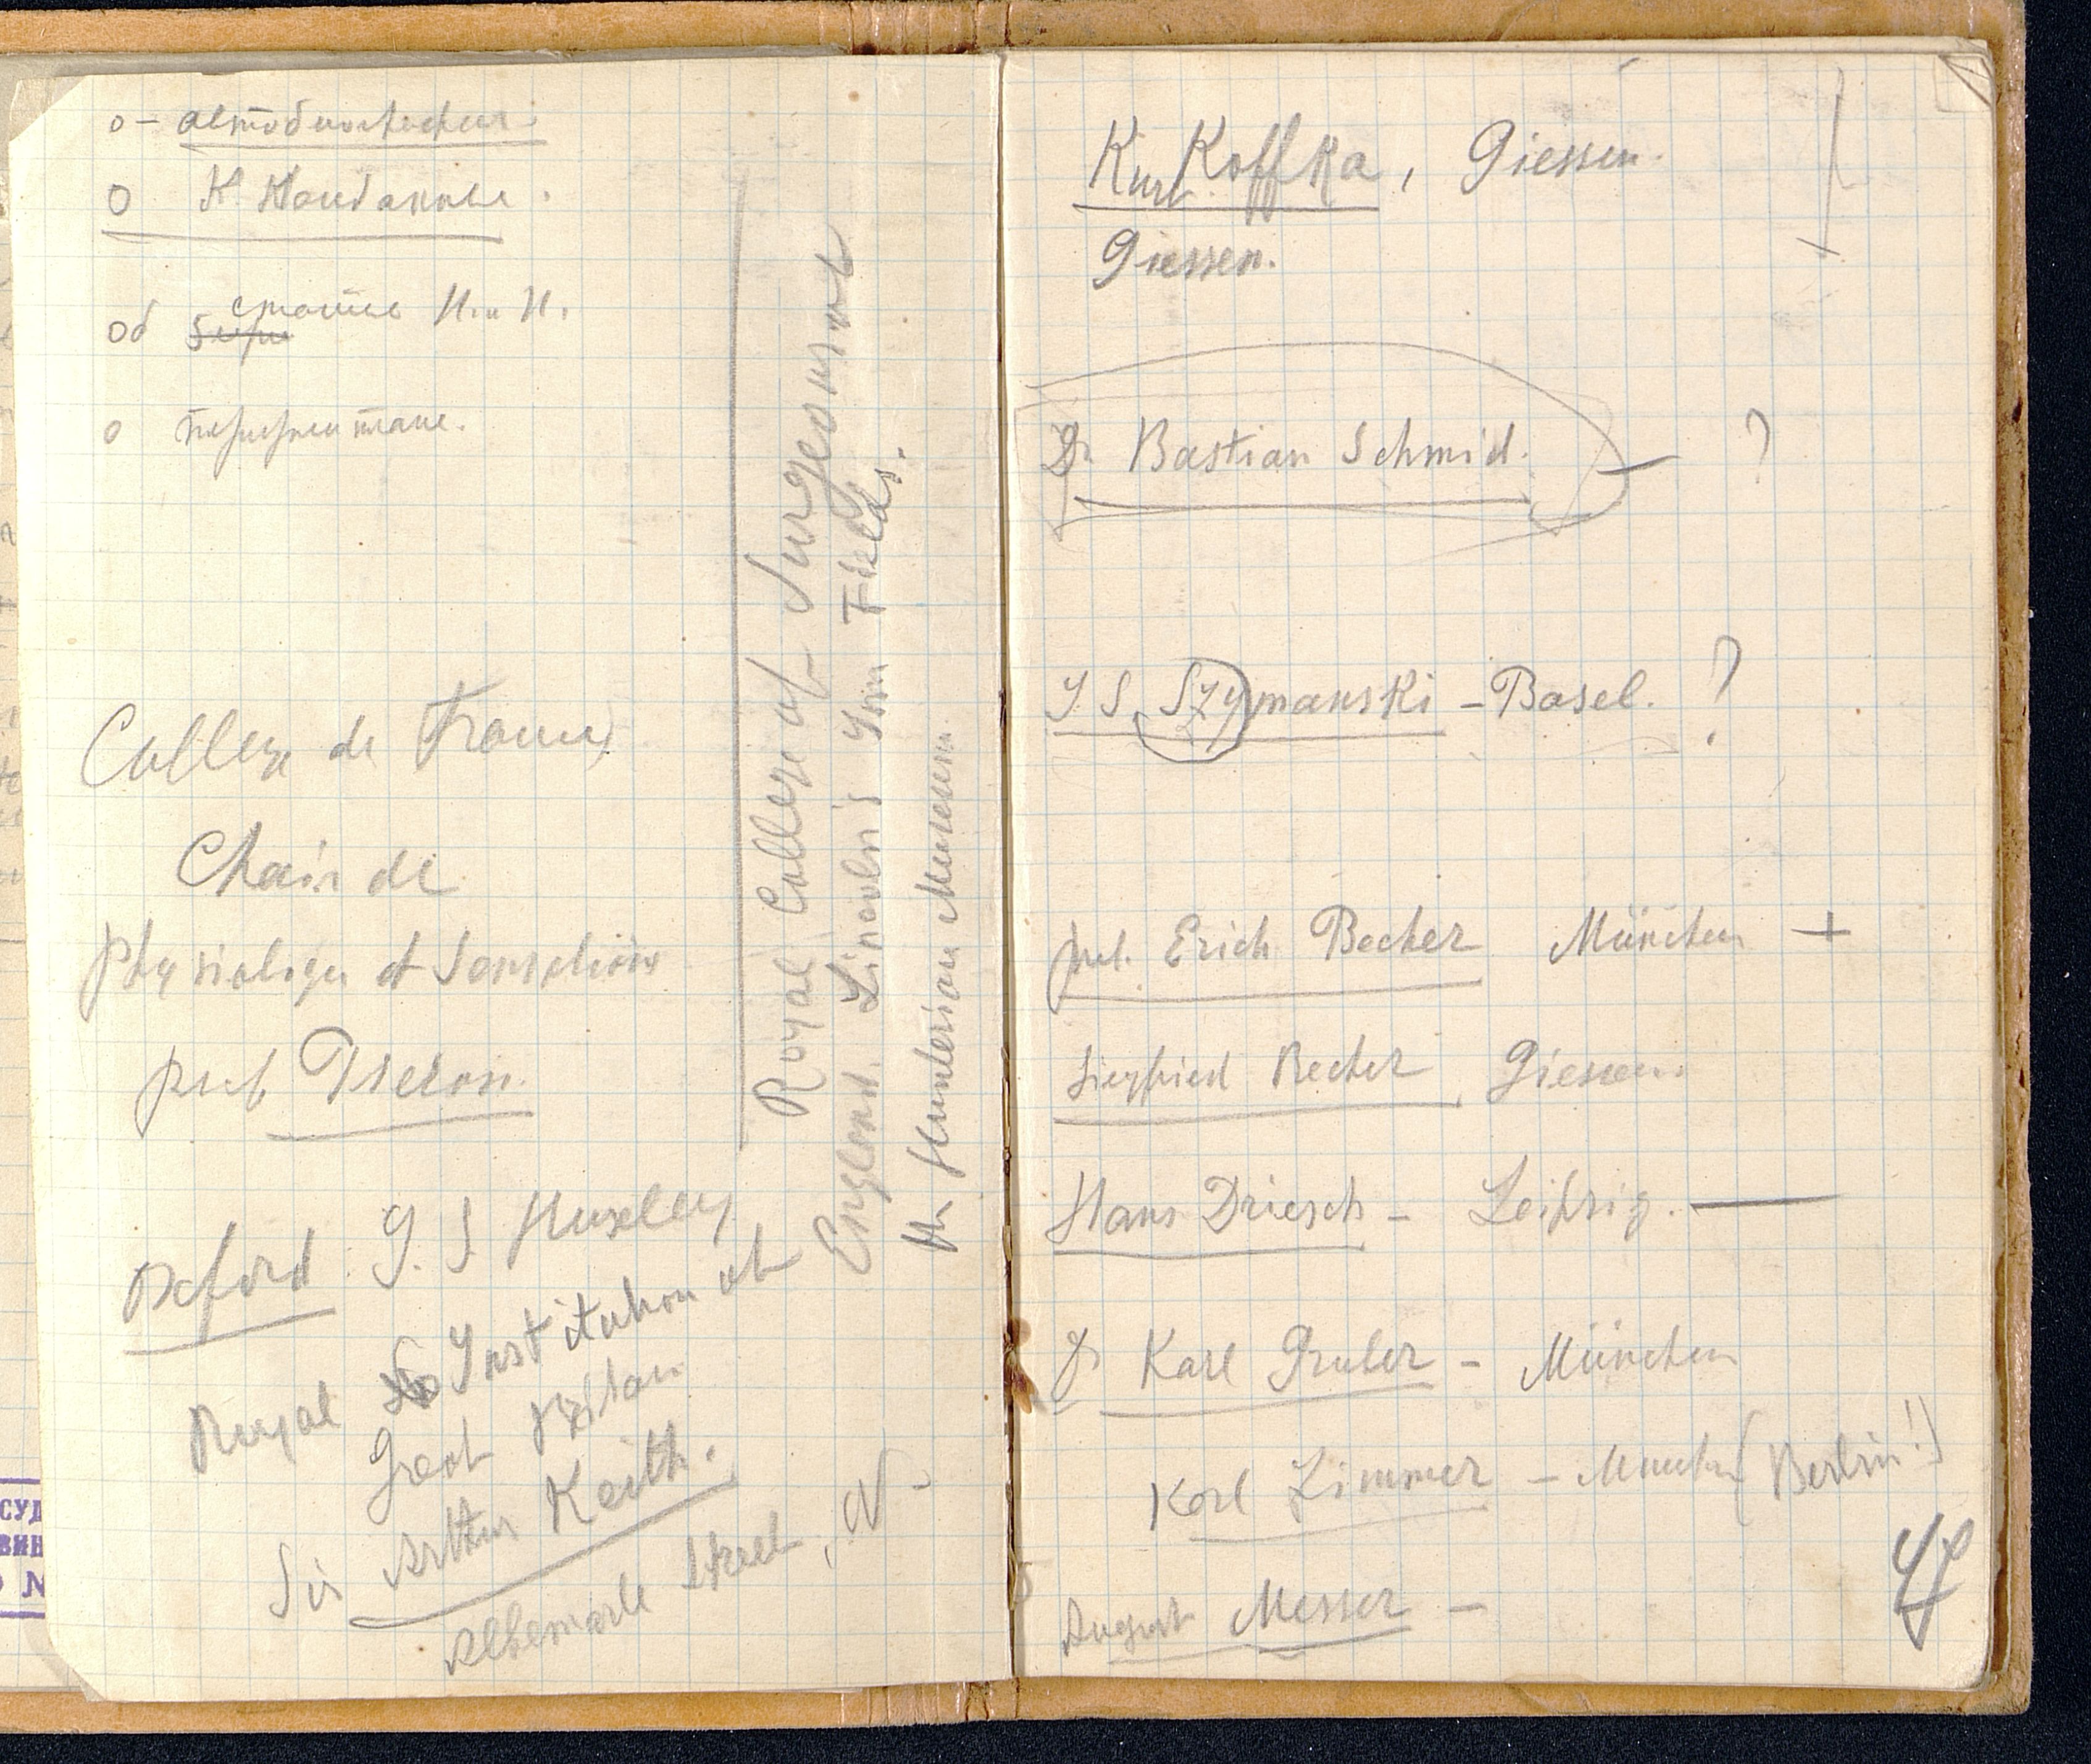 о –
о Н.
об статье Н. и Н.
о
College de
Chair de
Physiologie
prof Pieron.
Oxford J. S Huxley
Royal Institution of
Great Britan
Sir Arthur Keith.
Albemarle Street, W.
Royal College of Surgeons of
England. Lincoln's Inn Fields.
Hunterian Museum.
Kurt Koffka, Giessen.
Giessen.
Dr Bastian Schmid. — ?
J. S. Szymanski – Basel. ?
prof. Erich Becher München +
Siegfried Becher Giessen.
Hans Driesch – Leipzig. —
Dr Karl Gruber – München
Karl Zimmer – (Berlin!)
August Messer –
47
СУД
ВИН
N